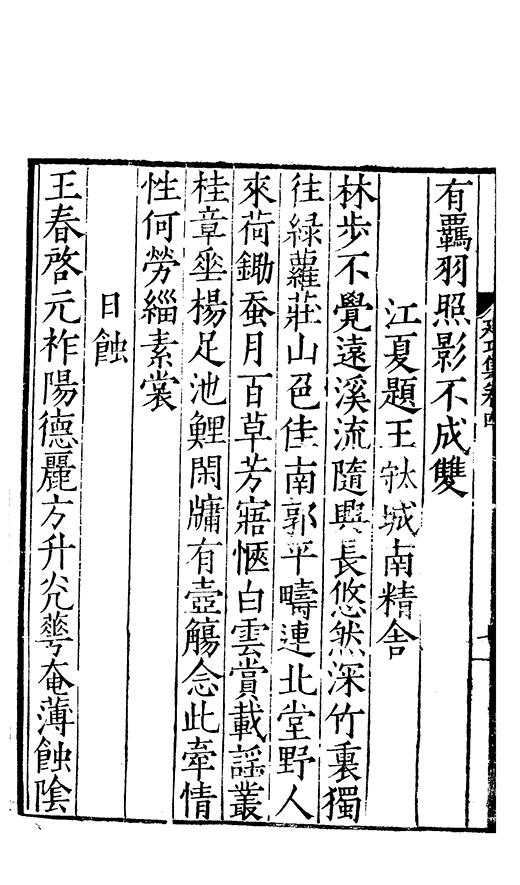 有羈羽照影不成雙
江夏題王𣏌城南精舍
林步不覺遠溪流隨興長悠然深竹裏獨
往綠蘿莊山色佳南郭平疇連北堂野人
來荷鋤蚕月百草芳寤愜白雲賞載謡叢
桂章垂楊足池鯉閑牗有壺觴念此牽情
性何勞緇素裳
日蝕
王春啓元祚陽德麗方升光華奄薄蝕陰